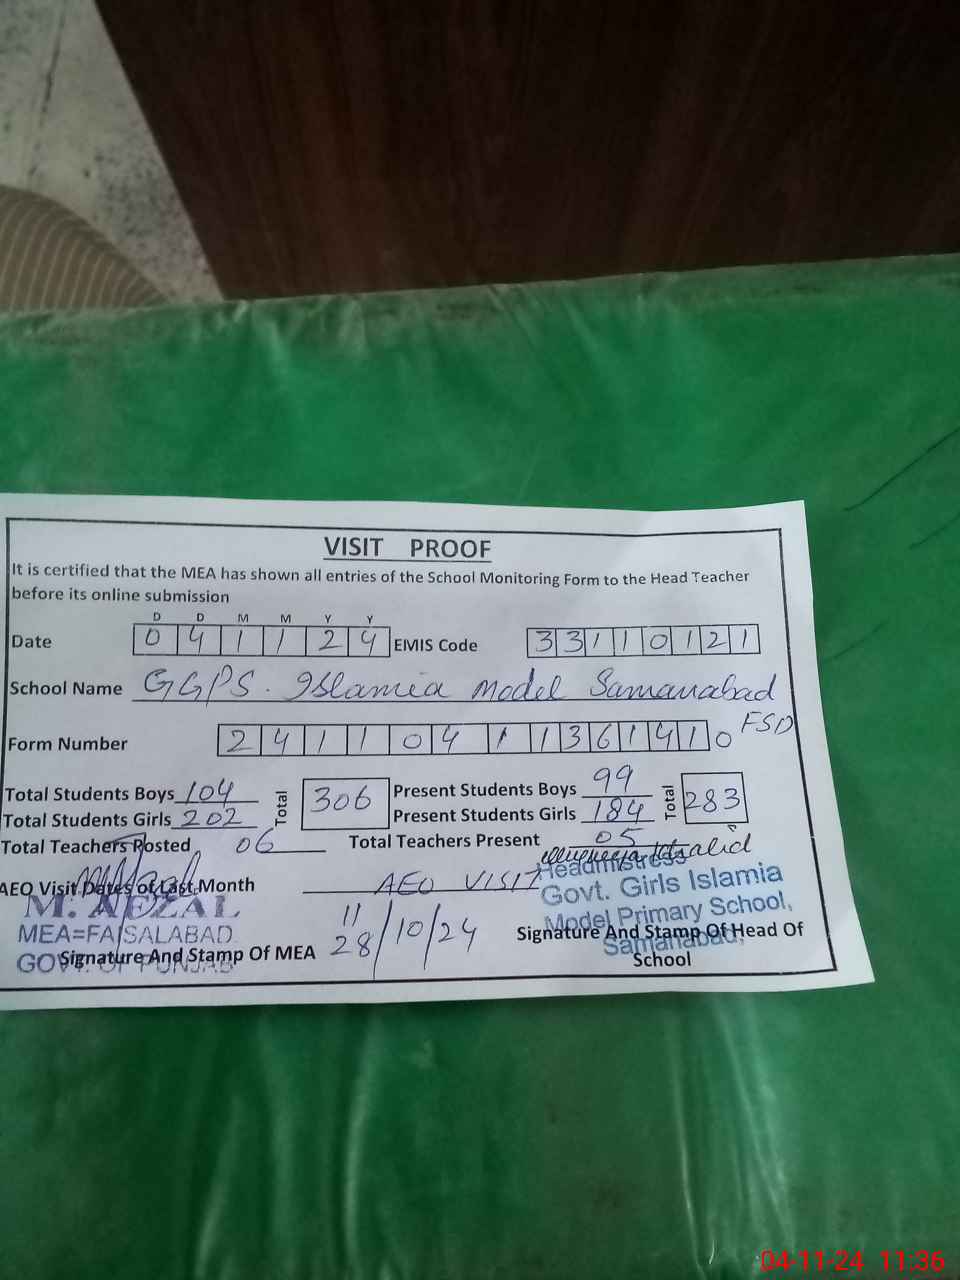 VISIT PROOF
It is certified that the MEA has shown all entries of the School Monitoring Form to the Head Teacher
before its online submission
D D M M Y Y
Date 0 4 1 1 2 4 EMIS Code 3 3 1 1 0 1 2 1
School Name GGPS. Islamia Model Samanabad
FSD
Form Number 2 4 1 1 0 4 1 1 3 6 1 4 1 0
Total Students Boys 104 Total 306 Present Students Boys 99 Total 283
Total Students Girls 202 Present Students Girls 184
Total Teachers Posted 06 Total Teachers Present 05
Khalid
AEO Visit Dates of Last Month AEO VISIT
Headmistress
M. AFZAL
Govt. Girls Islamia
MEA=FAISALABAD
11
Model Primary School,
GOVT. OF PUNJAB
28/10/24
Samanabad,
Signature And Stamp Of MEA Signature And Stamp Of Head Of
School
04-11-24 11:36